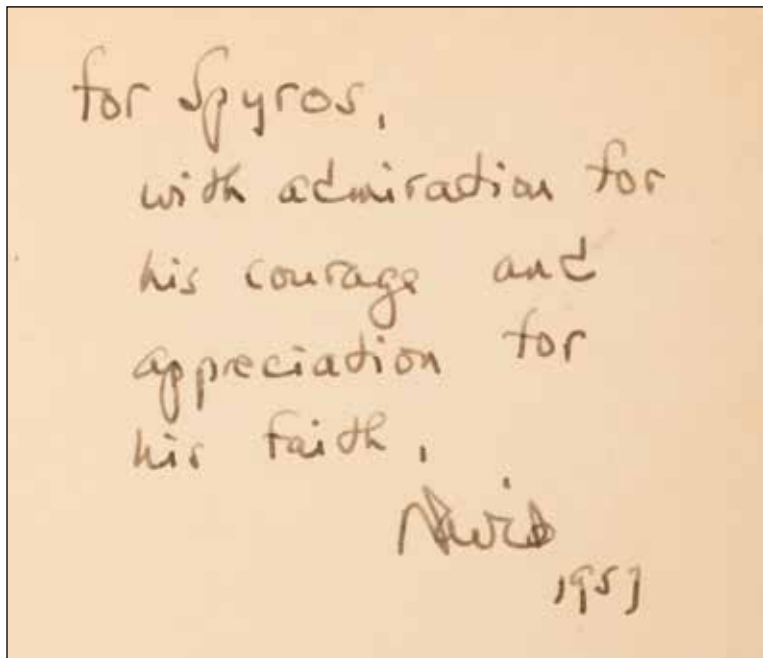 for Spyros,
with admiration for
his courage and
appreciation for
his faith,
David